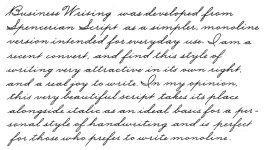 Business Writing was developed from
Spencerian Script as a simpler, monoline
version intended for everyday use. I am a
recent convert, and find this style of
writing very attractive in its own right,
and a real joy to write. In my opinion,
this very beautiful script takes its place
alongside italic as an ideal basis for a per-
sonal style of handwriting and is perfect
for those who prefer to write monoline.